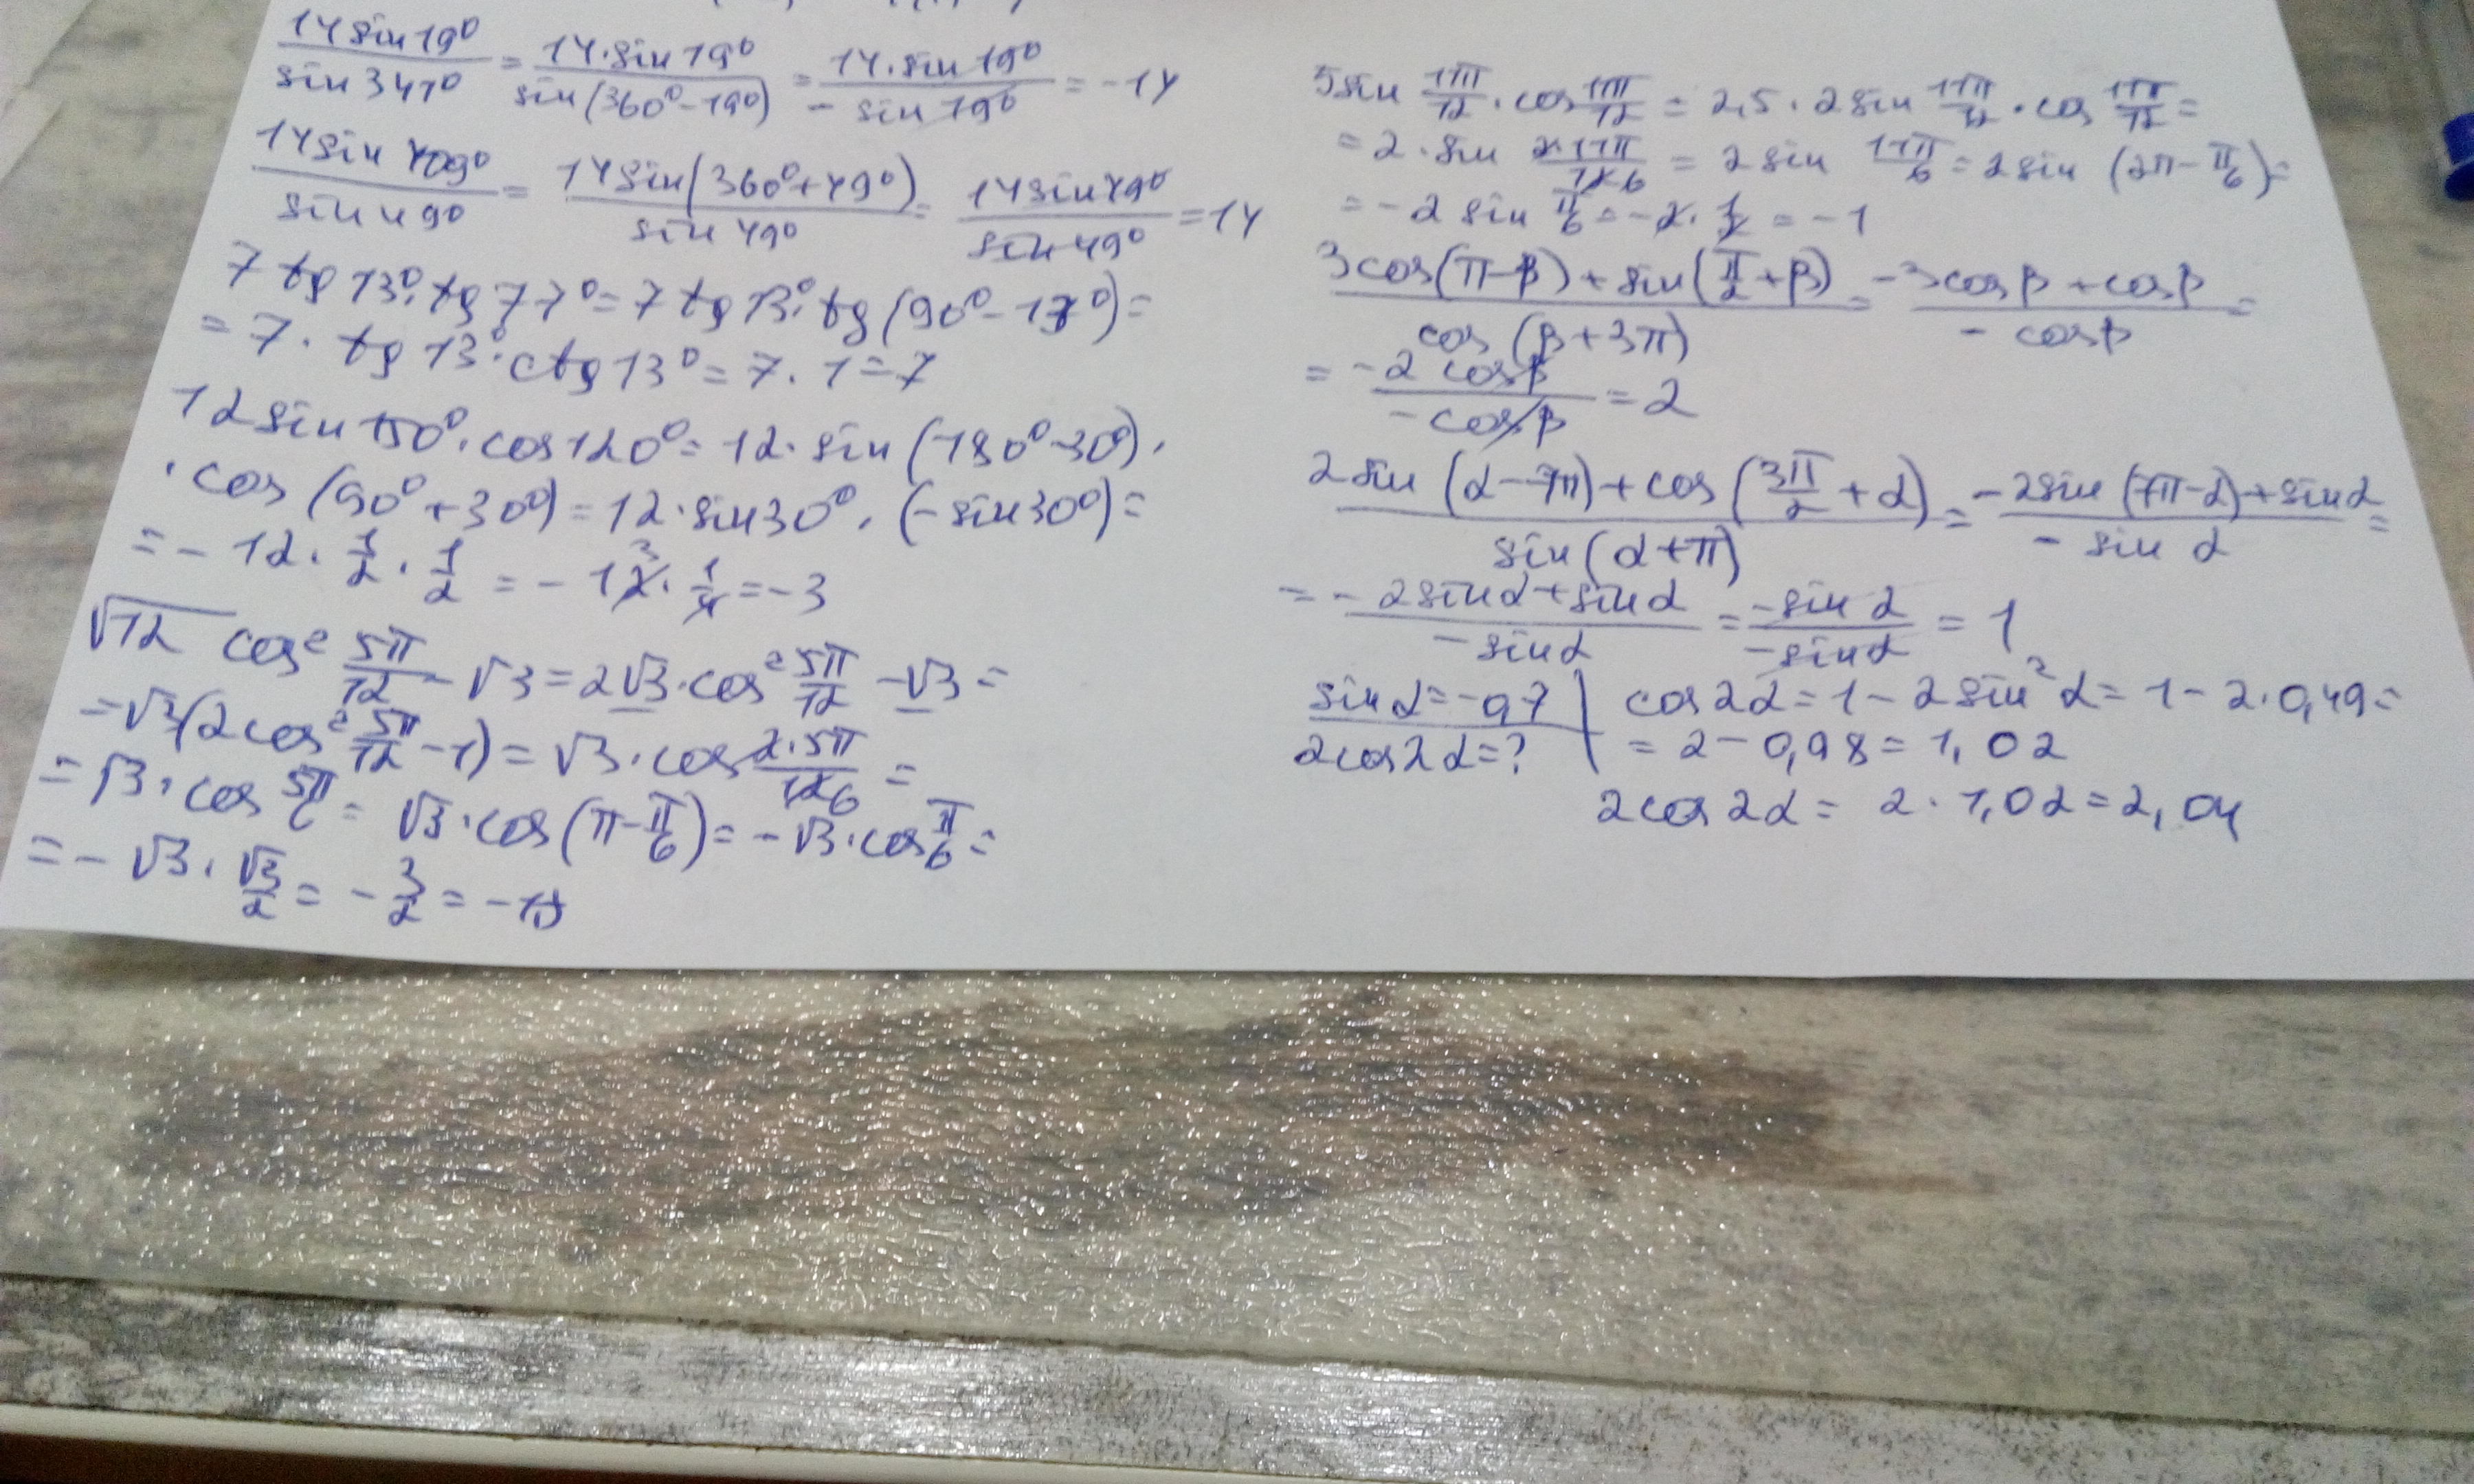 14 sin 19° / sin 341° = 14·sin 19° / sin(360°-19°) = 14·sin 19° / - sin 19° = -14
14 sin 409° / sin 49° = 14 sin(360°+49°) / sin 49° = 14 sin 49° / sin 49° = 14
7 tg 13°·tg 77° = 7 tg 13°·tg(90°-13°) =
= 7· tg 13°·ctg 13° = 7·1 = 7
12 sin 150°·cos 120° = 12·sin(180°-30°)·
·cos(90°+30°) = 12·sin 30°·(-sin 30°) =
= - 12·1/2·1/2 = - 12·1/4 = -3
√12 cos² 5π/12 - √3 = 2√3·cos² 5π/12 - √3 =
= √3(2cos² 5π/12 - 1) = √3·cos 2·5π/12 6 =
= √3·cos 5π/6 = √3·cos(π-π/6) = -√3·cos π/6 =
= - √3·√3/2 = - 3/2 = -1,5
5 sin 11π/12·cos 11π/12 = 2,5·2 sin 11π/12·cos 11π/12 =
= 2·sin 2·11π/12 6 = 2 sin 11π/6 = 2 sin (2π-π/6) =
= -2 sin π/6 = -2·1/2 = -1
3cos(π-β)+sin(π/2+β) / cos(β+3π) = -3cosβ+cosβ / - cosβ =
= -2 cosβ / -cosβ = 2
2 sin (α-7π)+cos(3π/2+α) / sin(α+π) = -2sin(7π-α)+sinα / - sin α =
= - 2sinα+sinα / - sinα = -sin α / -sinα = 1
sin α = -0,7 | cos 2α = 1 - 2 sin² α = 1 - 2·0,49 =
2cos2α = ? | = 2 - 0,98 = 1,02
2cos 2α = 2·1,02 = 2,04